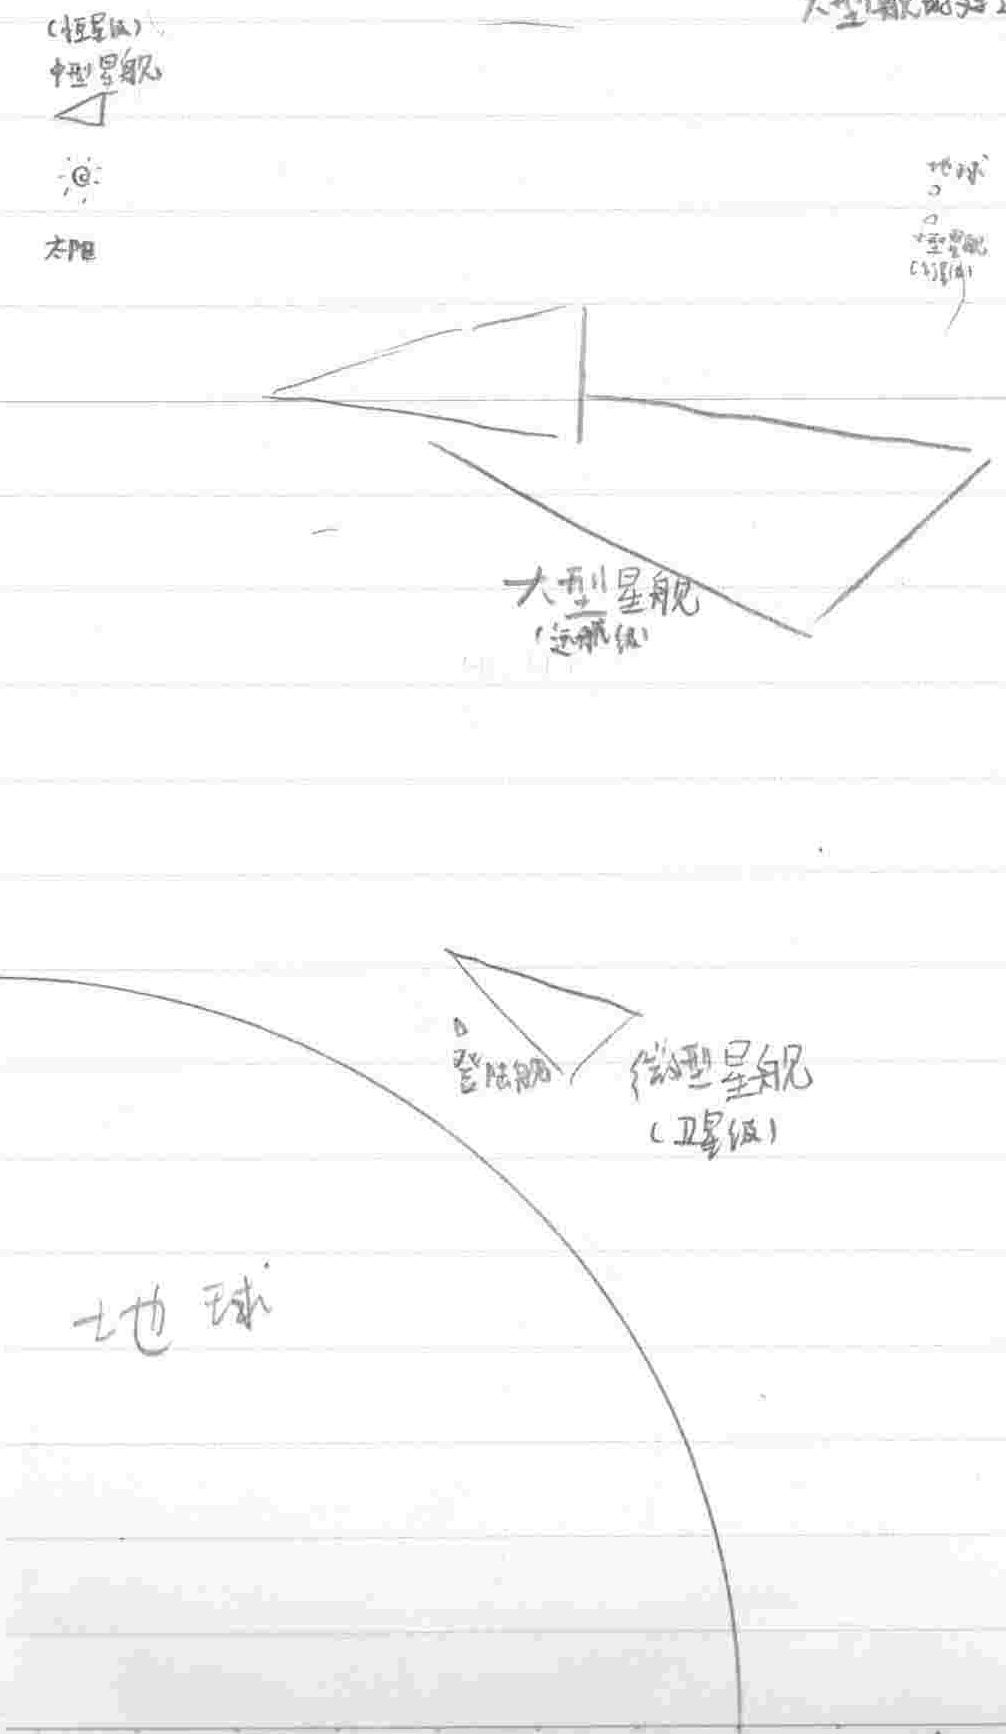 (恒星级)
中型星舰
太阳
地球
型星舰
大型星舰
(远航级)
登陆舰
微型星舰
(卫星级)
地球